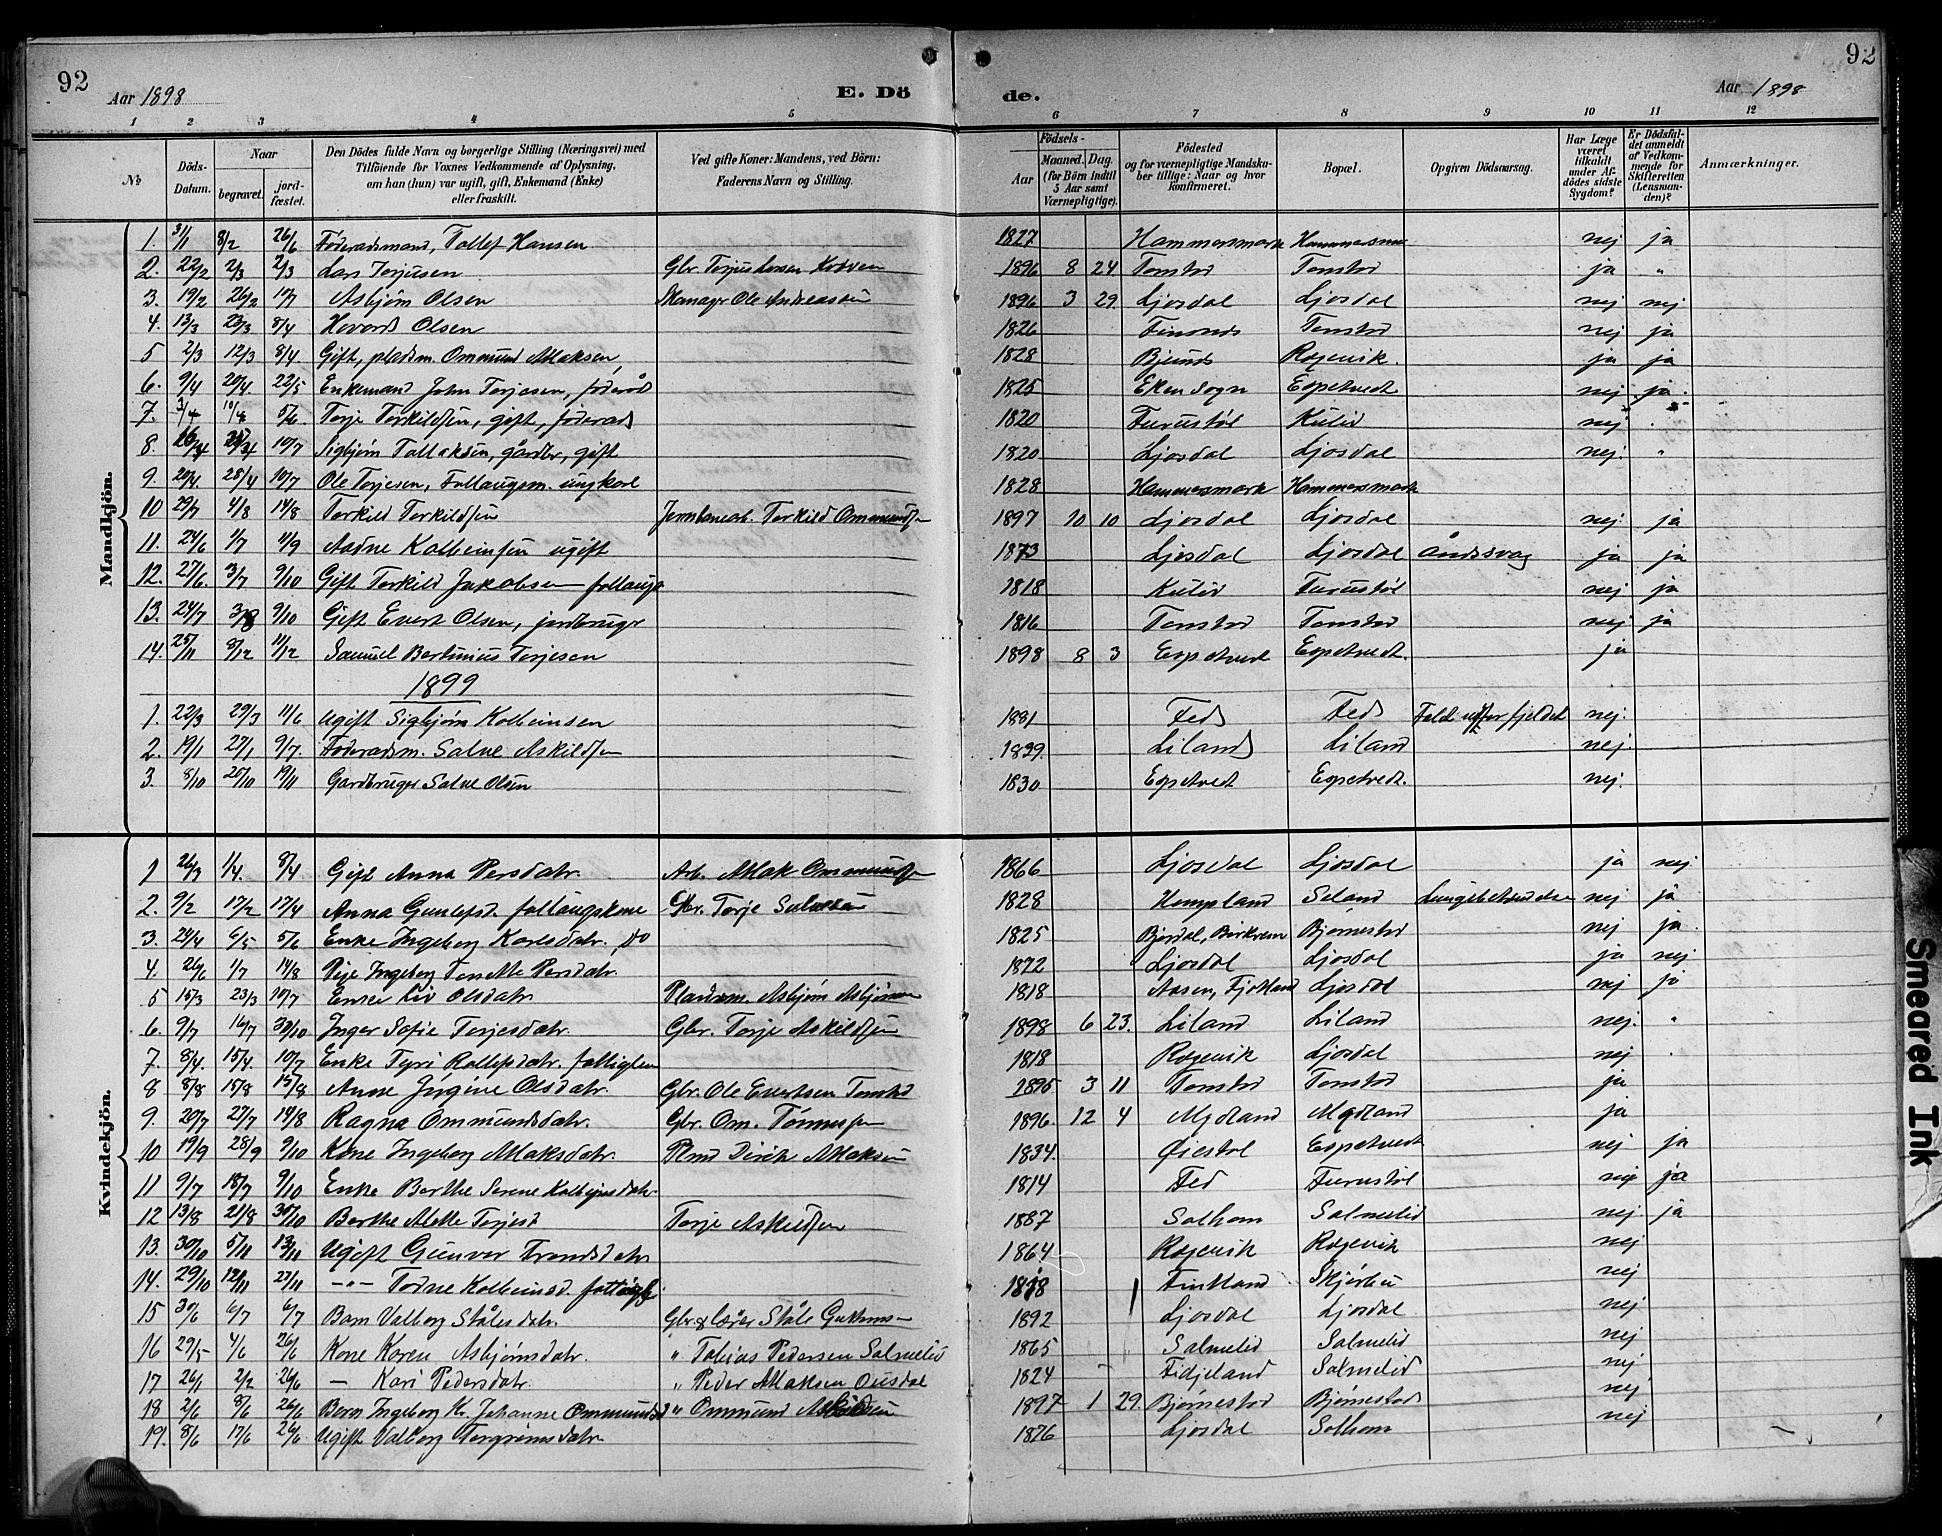 92
Aar 1898
E. Dö
de.
Aar 1898
92
1 2 3 4 5 6 7 8 9 10 11 12
№
Döds-Datum.
Naar
begravet.
jord-fæstet.
Den Dödes fulde Navn og borgerlige Stilling (Næringsvei) med
Tilföiende for Voxnes Vedkommende af Oplysning,
om han (hun) var ugift, gift, Enkemand (Enke)
eller fraskilt.
Ved gifte Koner: Mandens, ved Börn:
Faderens Navn og Stilling.
Födsels-
Aar
Maaned. Dag.
(for Börn indtil
5 Aar samt
Værnepligtige).
Födested
og for værnepligtige Mandska-
ber tillige: Naar og hvor
konfirmeret.
Bopæl.
Opgiven Dödsaarsag.
Har Læge
været
tilkaldt
under Af-
dödes sidste
Sygdom?
Er Dödsfal-
det anmeldt
af Vedkom-
mende for
Skifteretten
(Lensman-
den)?
Anmærkninger.
Mandkjön.
1. 31/1 8/2 26/6 Föderaadsmand, Tollef Hansen 1827 Hammersmark nej ja
2. 22/2 2/3 2/3 Lars Torjusen Gbr. Torjus Larsen 1896 8 24 Tonstad Tonstad ja "
3. 19/2 26/2 10/7 Asbjørn Olsen Skomager Ole Andreassen 1896 3 29 Ljosdal Ljosdal nej nej
4. 13/3 23/3 8/4 Hovard Olsen 1826 Tonstad nej ja
5 2/3 12/3 8/4 Gift, pladsm. Ommund Atlaksen, 1828 Rosevik. ja ja
6. 9/4 20/4. 22/5 Enkemand John Torjesen, føderåd 1825 Eken Sogn Espetvedt nej ja.
7. 3/4 10/4 5/6. Torje Torkildsen, gift, føderåd 1820 Furustøl Kulid nej
8. 26/4 10/7 Sigbjørn Tollaksen, gårdbr, gift 1820 Ljosdal Ljosdal nej. "
9. 20/4 28/4 10/7 Ole Torjesen, Fattaugsm. ungkarl 1828 Hammersmark Hammersmark
10 29/7 4/8 14/8 Torkild Torkildsen Jernbanearb. Torkild Ommundsen 1897 10 10 Ljosdal Ljosdal nej ja
11. 24/6 1/7 11/9 Aadne Kolbeinsen ugift 1873 Ljosdal Ljosdal Åndssvag ja ja
12. 27/6 3/7 9/10 Gift Torkild Jakobsen fattaugs 1818 Kulid Furustøl nej ja
13. 24/7 3/8 9/10 Gift Evert Olsen, jordbruger 1816 Tonstad Tonstad nej ja
14. 25/11 8/12 11/12 Samuel Bertinius Torjesen 1898 8 3 Espetvedt Espetvedt. ja
1899
1. 22/3 29/3 11/6 Ugift Sigbjørn Kolbeinsen 1881 Fed Fed Faldt udfor fjeldet nej.
2. 19/1 27/1 9/7. Føderaadsm. Salve Askildsen 1829. Liland Liland nej.
3. 8/10 20/10 19/11 Gardbruger Salve Olsen 1830 Espetvedt Espetvedt. nej.
Kvindekjön.
1 26/3 1/4. 8/4 Gift Anna Persdatr. Arb. Atlak Ommundsen 1866 Ljosdal Ljosdal ja nej
2. 9/2 17/2 17/4 Anna Gunlefsd. fattaugskone Gbr. Torje Salvesen 1828 Hompland Seland Lungebetændelse nej ja
3. 24/4 6/5 5/6 Enke Ingeborg Karlsdatr. do 1825 Bjordal, Birkrem Bjørnestad nej ja.
4. 26/6 1/7 14/8 Pige Ingeborg Tonette Persdatr. 1872 Ljosdal Ljosdal ja nej
5 15/3 23/3 10/7 Enke Liv Olsdatr Pladsm. Asbjørn Asbjørnsen 1818 Aasen, Fjotland Ljosdal nej ja
6. 9/7 16/7 30/10 Inger Sofie Torjesdatr. Gbr. Torje Askildsen 1898 6 23. Liland Liland nej. "
7. 8/4. 15/4. 10/7 Enke Tyri Rollefsdatr. fattiglem 1818 Rosevik Ljosdal nej
8 8/8 15/8 15/8 Anne Jørgine Olsdatr. Gbr. Ole Evertsen Tonstad 1895. 3 11 Tonstad Tonstad ja
9. 20/7 27/7 14/8 Ragna Ommundsdatr. Gbr. Om. Tønnessen 1896. 12 4 Mydland Mydland ja
10 19/9 28/9 9/10 Kone Ingeborg Atlaksdatr. Plmd Dirik Atlaksen 1834. Øiestøl Espetvedt nej ja
11 9/7 18/7 9/10 Enke Berthe Serene Kolbeinsdatr. 1814 Fed Furustøl nej ja
12 13/8 21/8 30/10 Berthe Alette Torjesd Torje Askildsen 1887 Solhom Salmelid nej. ja
13. 30/10 5/11 13/11 Ugift Gunvor Trondsdatr 1864 Rosevik Rosevik nej
14. 29/10 12/11 27/11 -"- Todne Kolbeinsd. 1818 Fintland nej
15 30/6 6/7 6/7 Barn Valborg Stålesdatr. Gbr & lærer Ståle 1892 Ljosdal Ljosdal nej
16 29/5 4/6 26/6 Kone Karen Asbjørnsdatr. " Tobias Pedersen Salmelid 1865 Salmelid Salmelid nej
17 26/1 2/2 26/6 — Kari Pedersdatr. " Peder Atlaksen Ousdal 1824 Fidjeland Salmelid nej
18 2/6 8/6 26/6 Barn Ingeborg K. Johanne Ommundsd " Ommund 1897 1 29 Bjørnestad Bjørnestad nej
19. 8/6 17/6 26/6 Ugift Valborg Torgrimsdatr 1876 Ljosdal Solhom nej
Smeared Ink